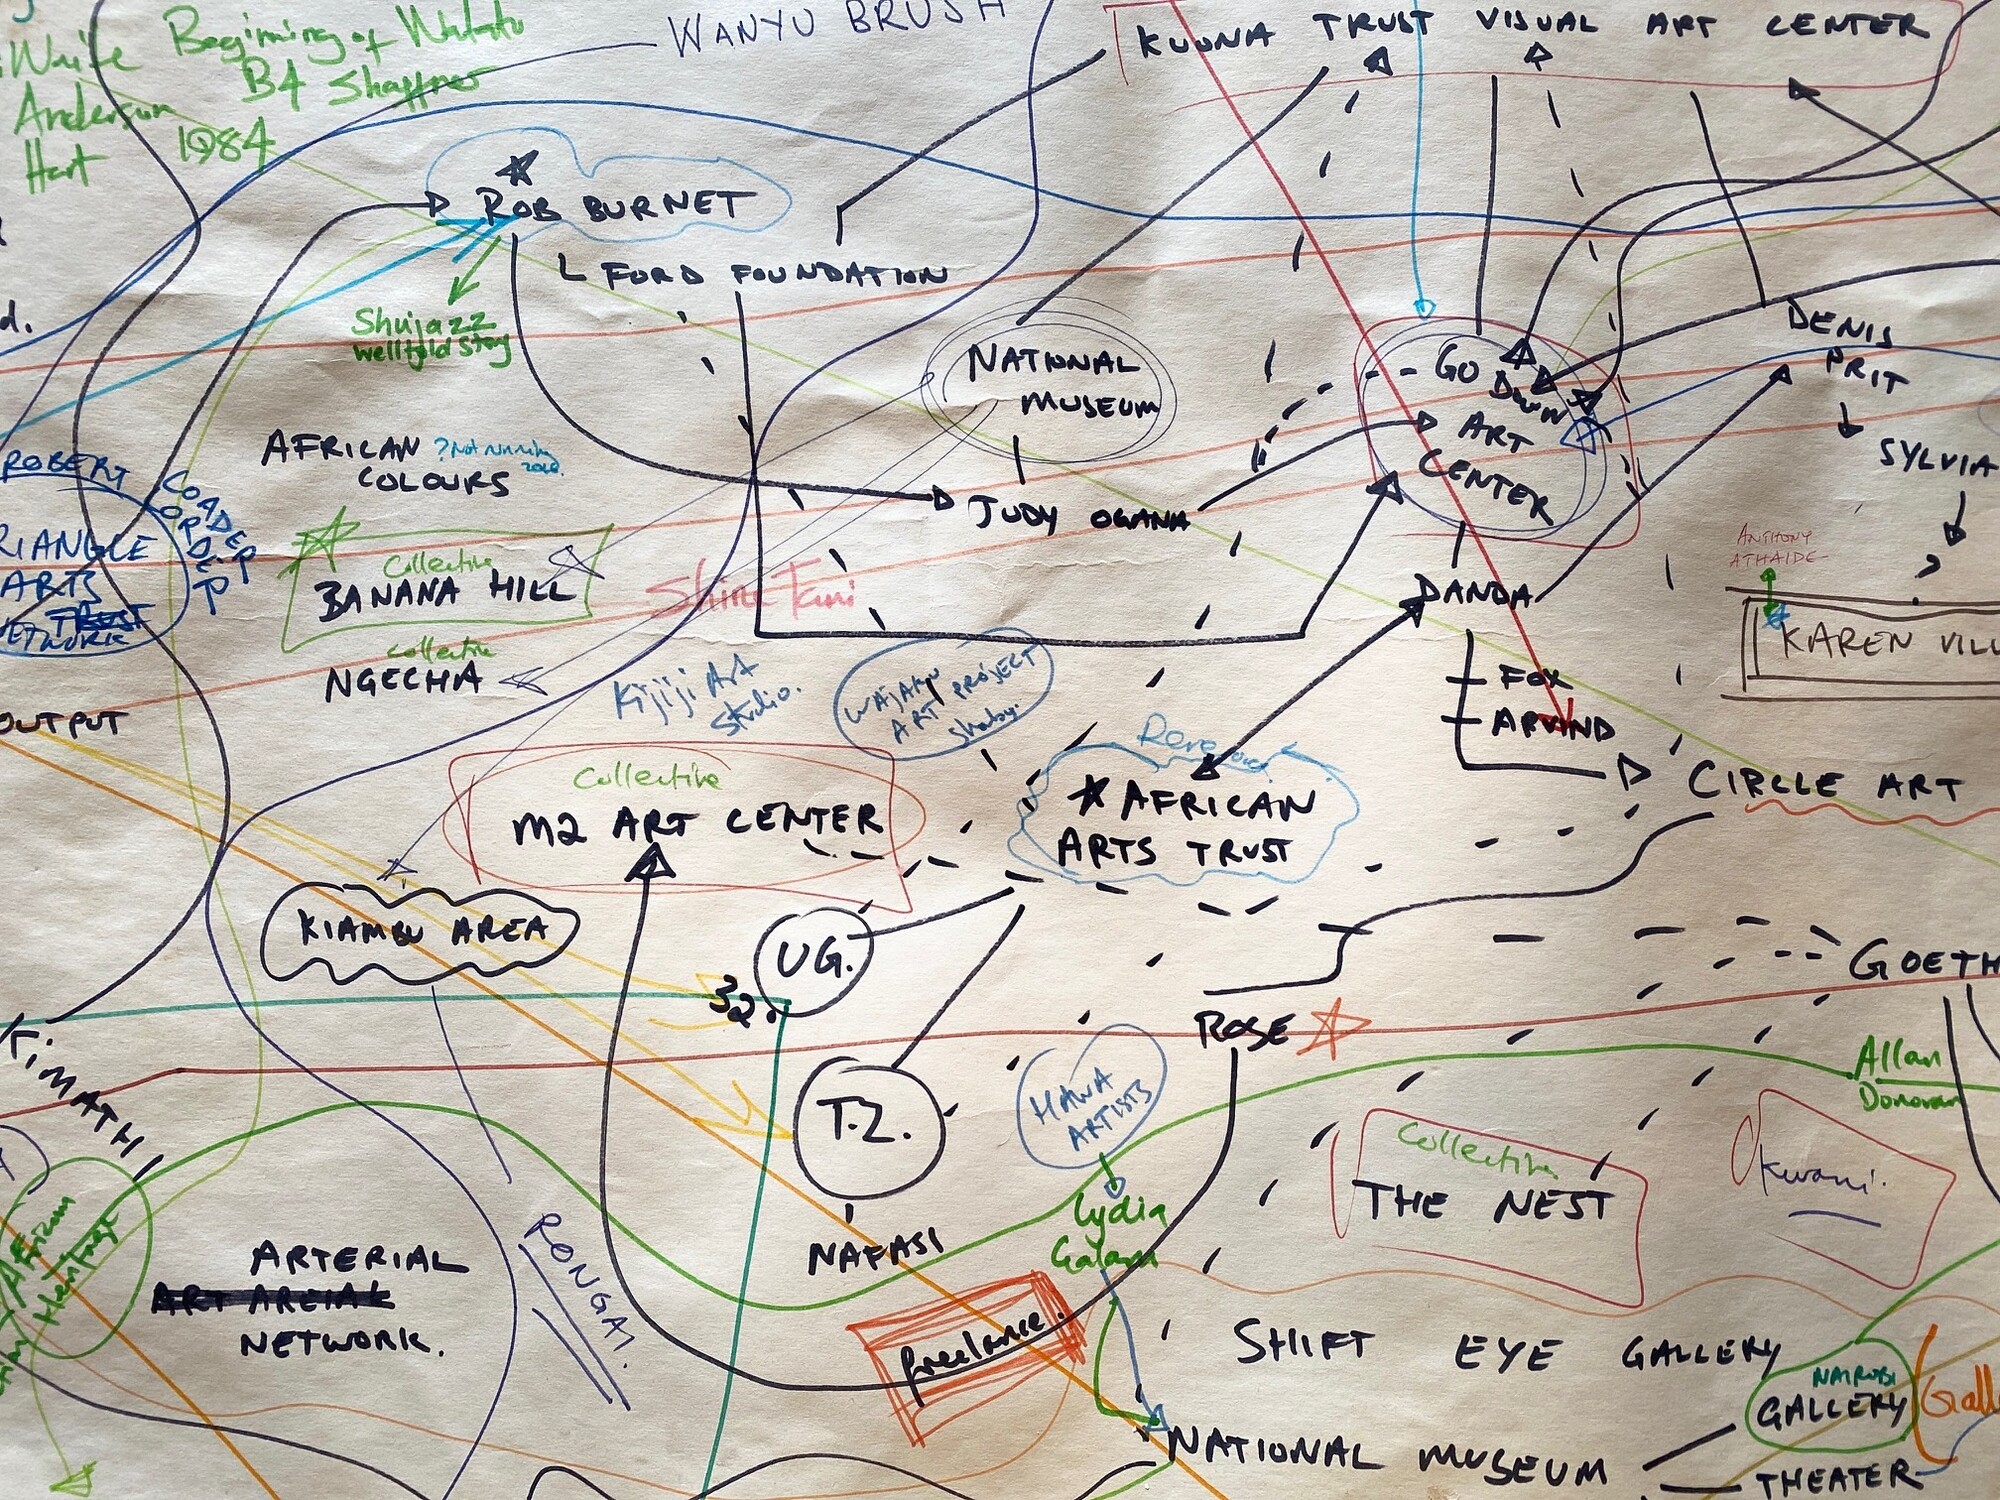 WANYU BRUSH
KUONA TRUST VISUAL ART CENTER
Beginning of Watatu
B4 Shaffner
1984
Anderson
Hart
ROB BURNET
L FORD FOUNDATION
Shujazz
welltold story
NATIONAL
MUSEUM
GO
DOWN
ART
CENTER
DENIS
PRIT
SYLVIA
?
AFRICAN
COLOURS
?Not running
ROBERT
COOPER
RIANGLE
ARTS
TRUST
ETWORK
JUDY OGANA
Collective
BANANA HILL
Collective
NGECHA
DANDA
FOX
ARVIND
ANTHONY
ATHAIDE
KAREN VILL
OUTPUT
Kijiji Art
Studio.
WAJAKU
ART PROJECT
Shaby.
Collective
M2 ART CENTER
AFRICAN
ARTS TRUST
CIRCLE ART
KIAMBU AREA
UG.
32.
GOETH
ROSE
KIMATHI
T.Z.
HAWA
ARTISTS
Allan
Donovan
Collective
THE NEST
Kwani.
NAFASI
Lydia
Galavu
African
Heritage
ARTERIAL
NETWORK.
RONGAI.
freelance.
SHIFT EYE GALLERY
NAIROBI
GALLERY
Galle
NATIONAL MUSEUM
THEATER